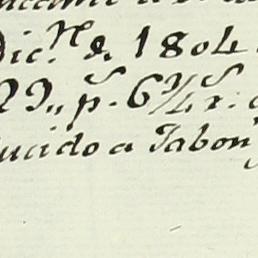 Dic.re de 1804
29,, p.s 6 1/4 r.s
ucido a Jabon